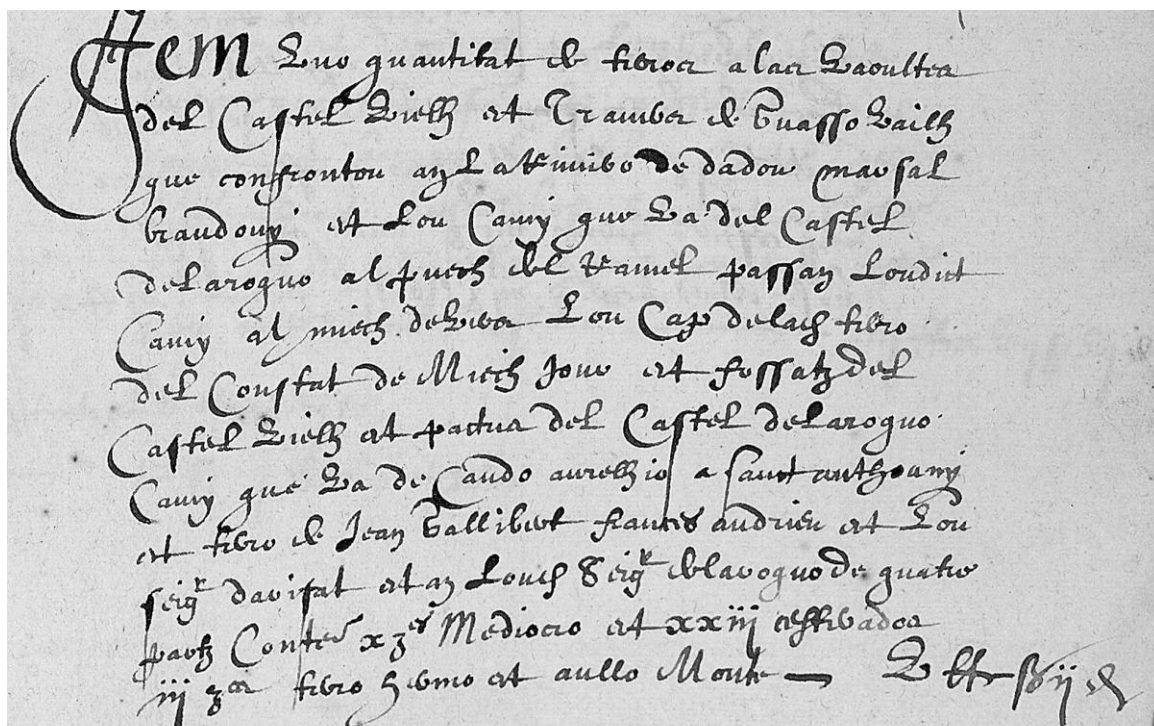 Item Uno quantitat de terros a las Vaoultes
del Castel Vielh et Trauvers de Guasso Vailh
que confronton an la de dadou marsal
brandouy et Lou Camy que Va del Castel
de Laroquo al puech del Ramel passan Loudict
Camy al miech devers Lou Cap delach terro
del Constat de Miech Jove et fossatz del
Castel Vielh et pactus del Castel de Laroquo
Camy que Va de Caudo aurelhio a sanct anthoany
et terro de Jean Gallibert frances andrieu et Lou
seigr davisat et an Louch Seigr de laroquo de quatre
partz Conte Mediocro et xxiii cesteirados
iii terro hermo et aullo Monte —